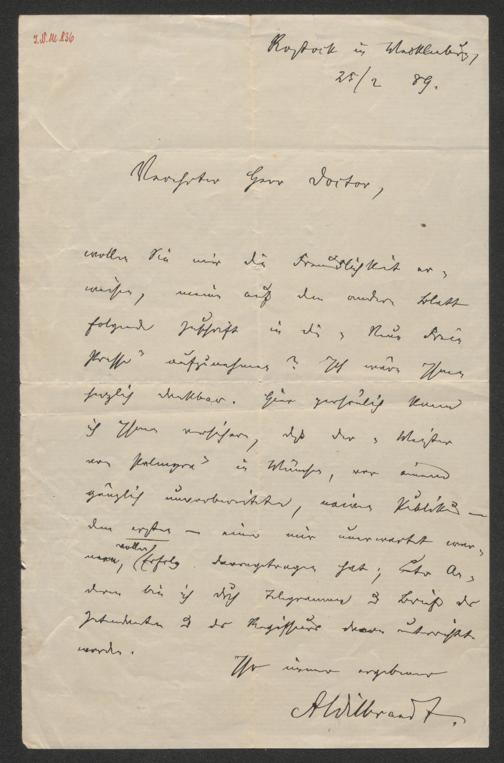 I.N. 16.836
Rostock in Mecklenburg,
25/2 89.
Verehrter Herr Doctor,
wollen Sie mir die Freundlichkeit er-
weisen, meine auf dem andern Blatt
folgende Zuschrift in die „Neue Freie
Presse“ aufzunehmen? Ich wäre Ihnen
herzlich dankbar. Hier persönlich kann
ich Ihnen versichern, daß der „Meister
von Palmyra“ in München, vor einem
gänzlich unvorbereiteten, naiven Publikum –
dem ersten – einen mir unerwartet war-
men, vollen Erfolg davongetragen hat; unter An-
derm bin ich durch Telegramme & Briefe des
Intendanten & des Regisseurs davon unterrichtet
worden.
Ihr immer ergebener
AWilbrandt.